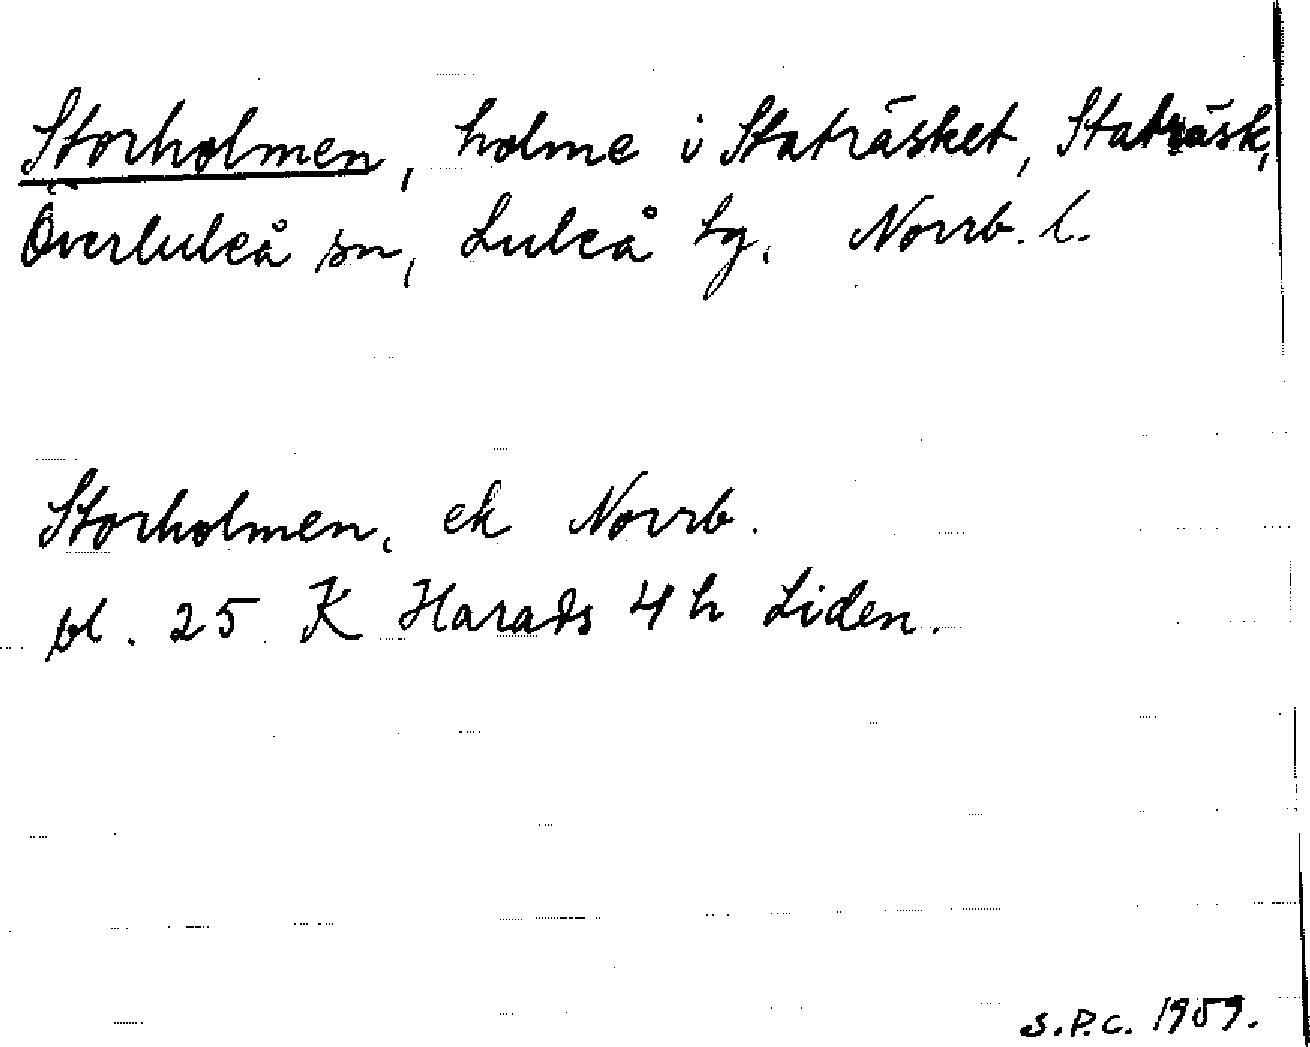 Storholmen, holme i Staträsket, Staträsk,
Överluleå sn, Luleå tg. Norrb. l.
Storholmen, ek Norrb.
bl. 25 K Harads 4 h Liden.
S.P.C. 1959.